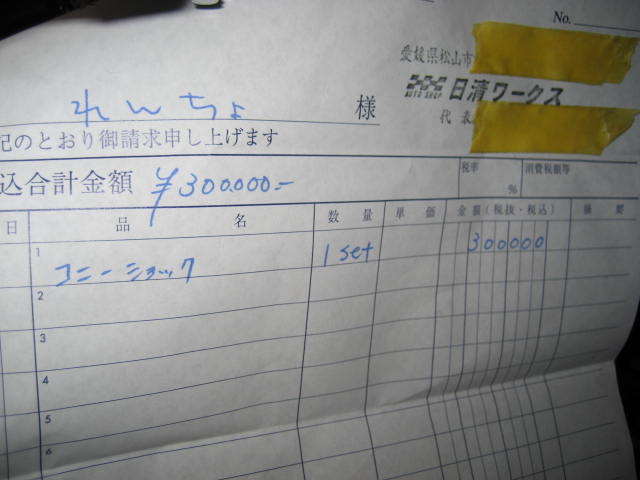 No.
愛媛県松山市
日清ワークス
代表
れんちょ 様
記のとおり御請求申し上げます
込合計金額 ¥300,000-
税率 % 消費税額等
日 品名 数量 単価 金額(税抜・税込) 摘要
1 コニーショック 1 set 300000
2
3
4
5
6